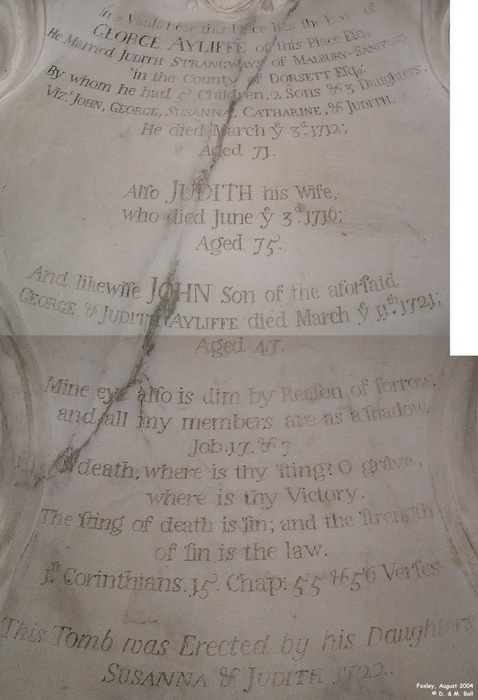 In a Vault near this Place lies the Body of
GEORGE AYLIFFE of this Place Esqr.
He Married JUDITH STRANGWAYS of MALBURY-SANFORD
in the County of DORSETT ESQr:
By whom he had 5 Children, 2 Sons & 3 Daughters,
Viz.t JOHN, GEORGE, SUSANNA, CATHARINE, & JUDITH.
He died March ye 3d. 1712;
Aged 71.
Alſo JUDITH his Wife,
who died June ye 3d. 1716;
Aged 75.
And likewiſe JOHN Son of the aforſaid
GEORGE & JUDITH AYLIFFE died March ye 11th. 1721;
Aged 47.
Mine eye alſo is dim by Reaſon of ſorrow,
and all my members are as a ſhadow.
Job. 17. & 7
O death, where is thy ſting? O grave,
where is thy Victory.
The ſting of death is ſin; and the ſtrength
of ſin is the law.
1ſt. Corinthians. 15. Chap: 55 & 56 Verſes
This Tomb was Erected by his Daughters
SUSANNA & JUDITH 1722.
Foxley, August 2004
© D. & M. Ball